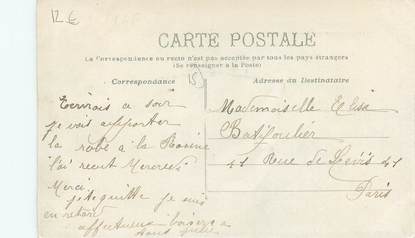 12 €
CARTE POSTALE
La Correspondance au recto n'est pas acceptée par tous les pays étrangers
(Se renseigner à la Poste)
Correspondance
15
Adresse du Destinataire
ce soir
je vais apporter
la robe à la
j'ai recut Mercredi
Merci
je suis
en retard
affectueux baisers a
tous
Mademoiselle Elisa
41 Rue de 41
Paris